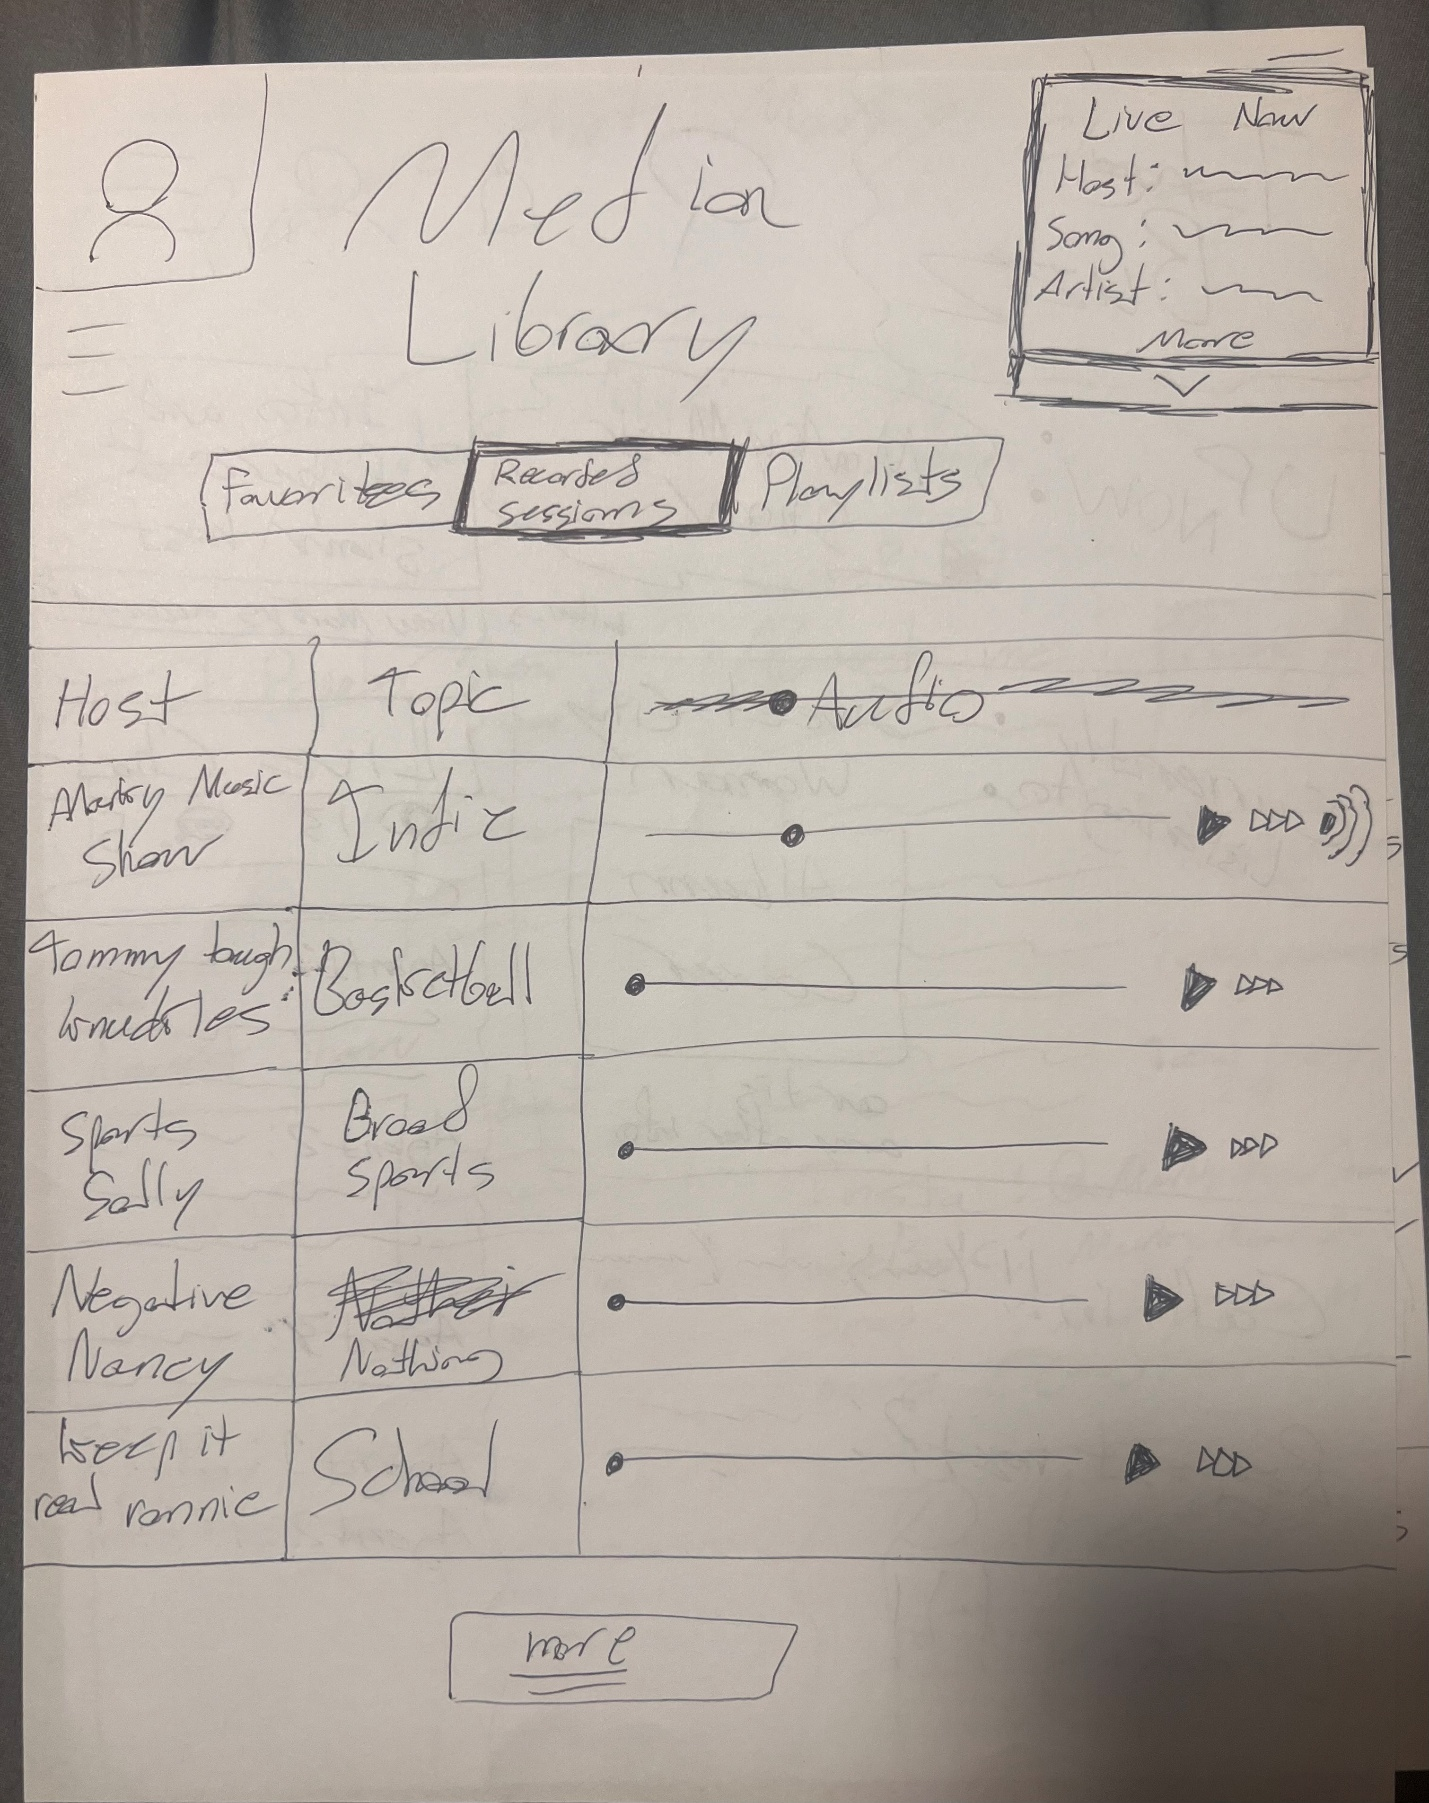 Median
Library
Live Now
Host:
Song:
Artist:
More
Favorites
Recorded
sessions
Playlists
Host
Topic
Audio
Marty Music
Show
Indie
Tommy tough
knuckles
Basketball
Sports
Sally
Broad
sports
Negative
Nancy
Nothing
keep it
real ronnie
School
more